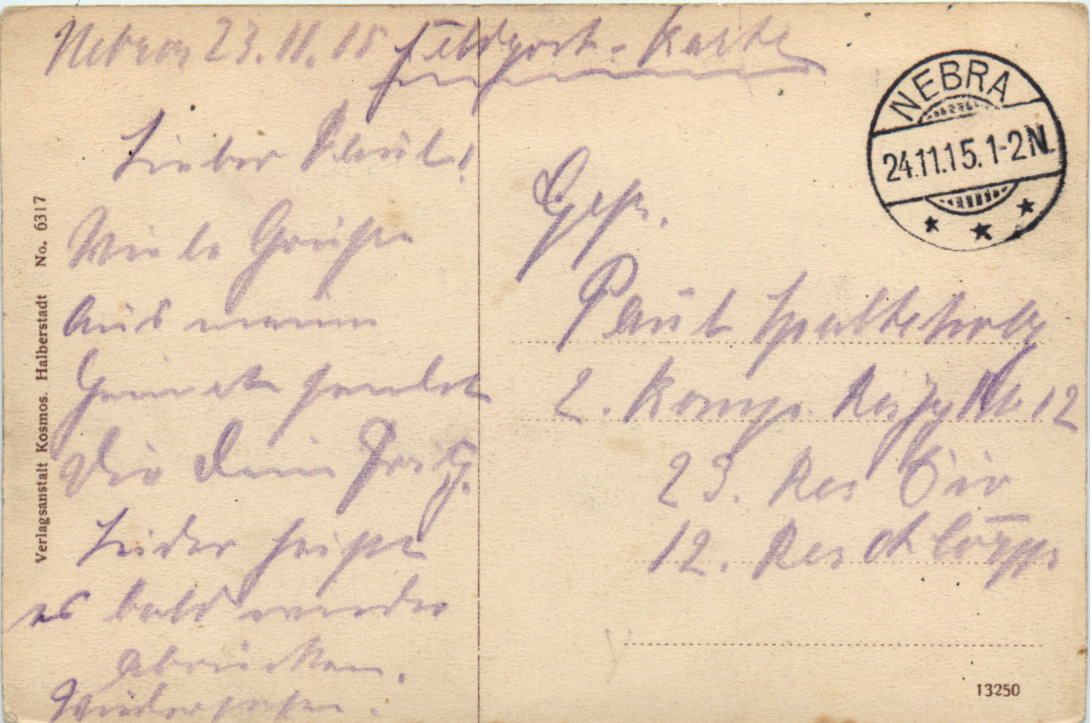 Nebra 23.11.15 Feldpost-Karte
Lieber Paul!
Viele Grüße
aus meiner
Heimat sendet
Dir Dein Fritz.
Leider heißt
es bald wieder
abrücken.
Wiedersehen.
NEBRA
24.11.15.1-2N.
Gefr.
Paul Spalteholz
2. Komp. Res. Jg. Bt. 12
23. Res Div
12. Res A Corps
Verlagsanstalt Kosmos. Halberstadt No. 6317
13250